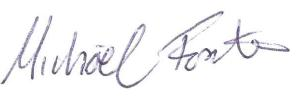 Michael Foster